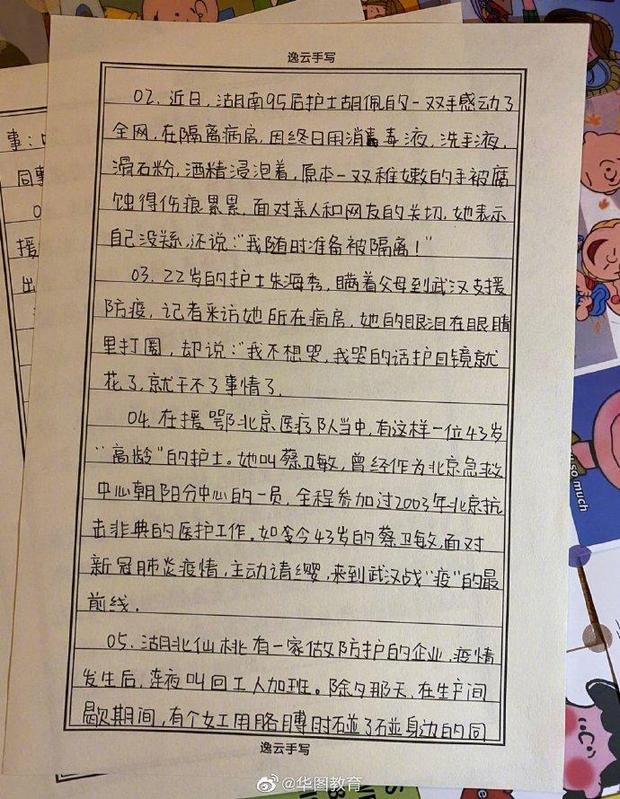 逸云手写
02. 近日，湖南95后护士胡佩的一双手感动了
全网，在隔离病房，因终日用消毒液，洗手液，
滑石粉，酒精浸泡着，原本一双稚嫩的手被腐
蚀得伤痕累累，面对亲人和网友的关切，她表示
自己没关系，还说：“我随时准备被隔离！”
03. 22岁的护士朱海秀，瞒着父母到武汉支援
防疫，记者采访她所在病房，她的眼泪在眼睛
里打圈，却说：“我不想哭，我哭的话护目镜就
花了，就干不了事情了．
04. 在援鄂北京医疗队当中，有这样一位43岁
“高龄”的护士。她叫蔡卫敏，曾经作为北京急救
中心朝阳分中心的一员，全程参加过2003年北京抗
击非典的医护工作。如今43岁的蔡卫敏，面对
新冠肺炎疫情，主动请缨，来到武汉战“疫”的最
前线．
05. 湖北仙桃有一家做防护的企业，疫情
发生后，连夜叫回工人加班。除夕那天，在生产间
歇期间，有个女工用胳膊肘碰了碰身边的同
逸云手写
事：
同事
0
援
出
so much
@华图教育